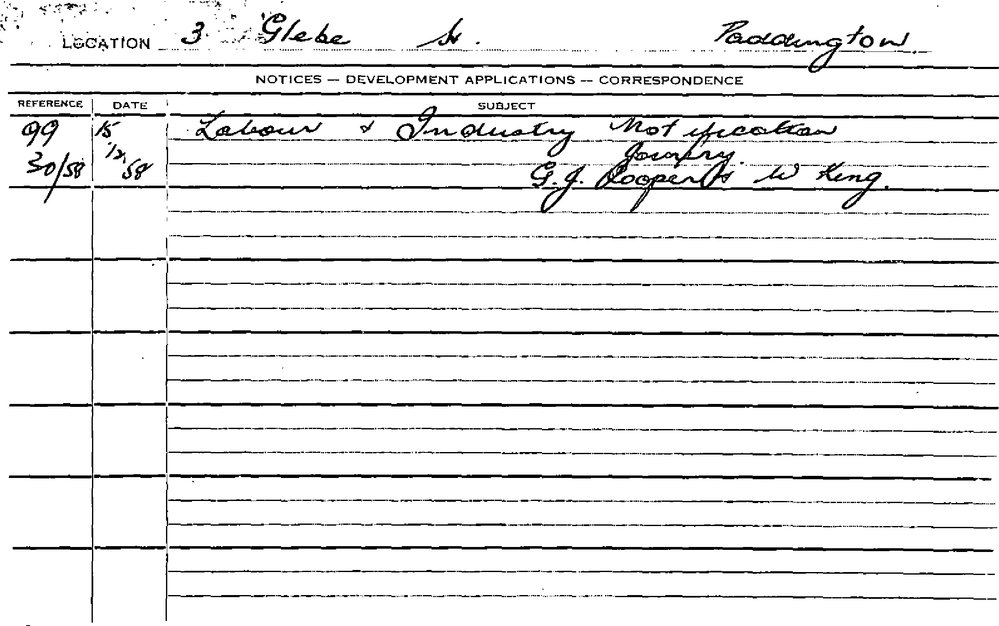 LOCATION 3 Glebe St. Paddington
NOTICES — DEVELOPMENT APPLICATIONS — CORRESPONDENCE
REFERENCE DATE SUBJECT
99 15 Labour & Industry Notification
30/58 12 58 Joinery.
G. J. Cooper & W King.